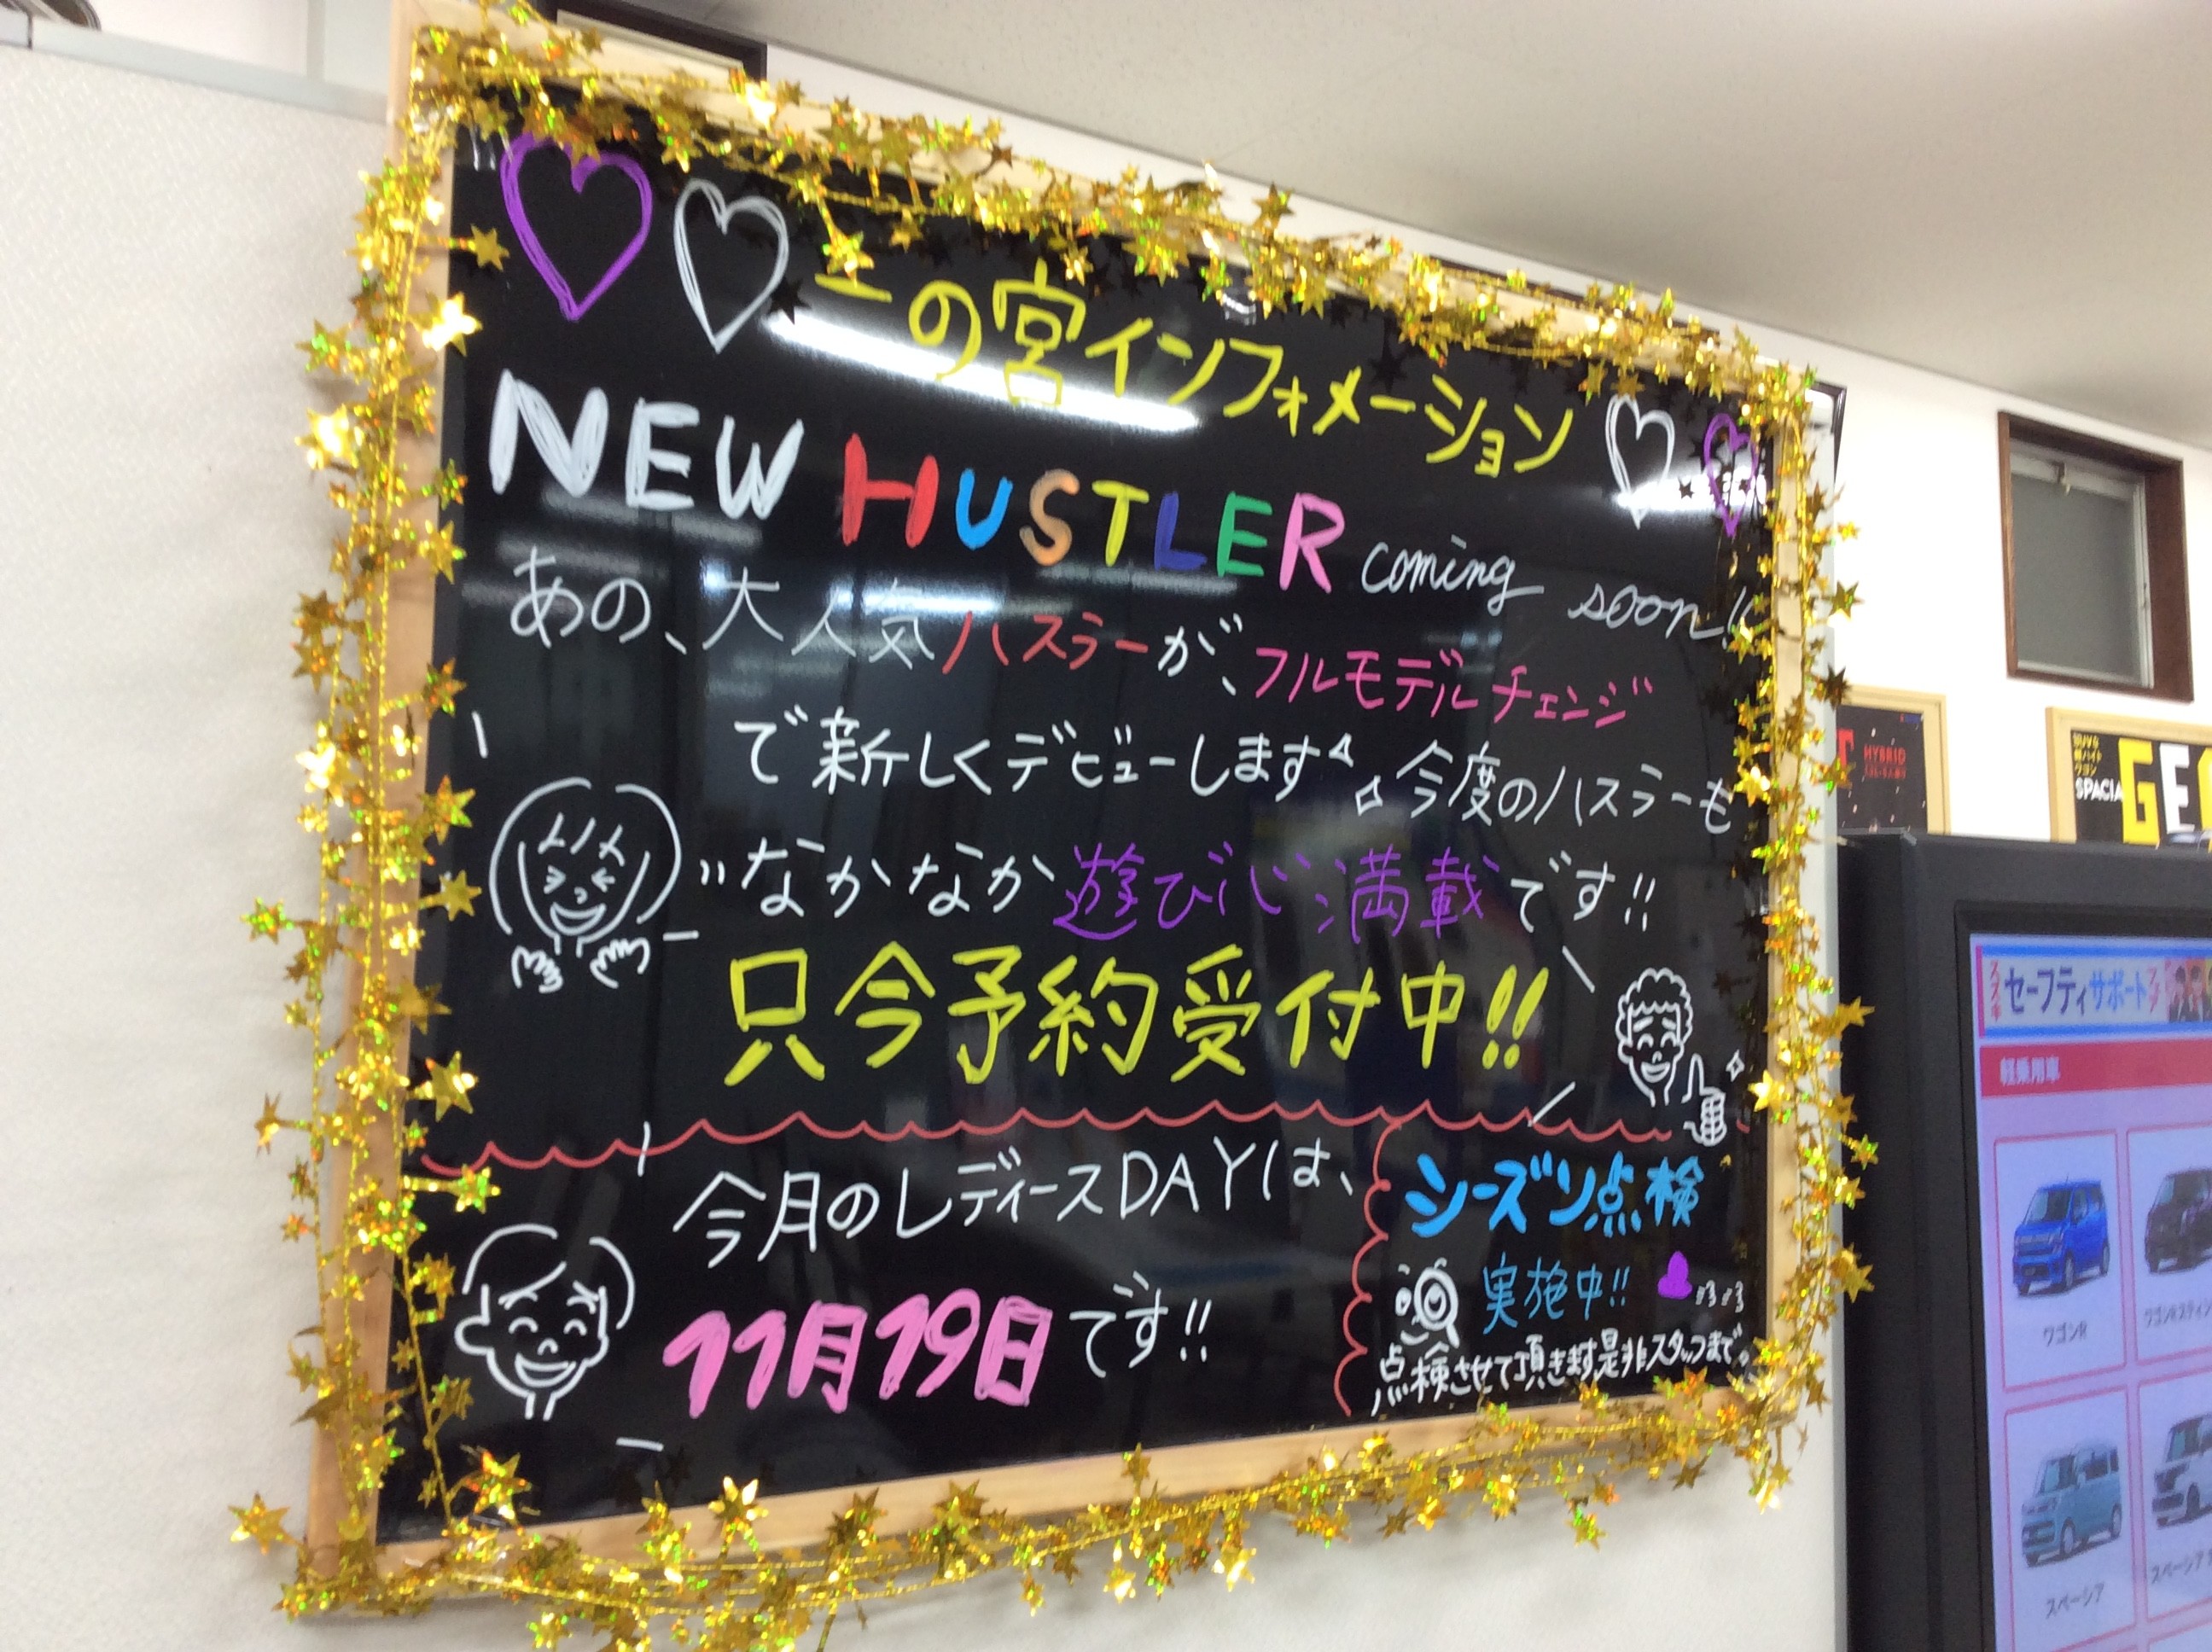 二の宮インフォメーション
NEW HUSTLER coming soon!!
あの、大人気ハスラーが、フルモデルチェンジ
で新しくデビューします 今度のハスラーも
なかなか遊び心満載です!!
只今予約受付中!!
今月のレディースDAYは、
11月19日です!!
シーズン点検
実施中!!
点検させて頂きます是非スタッフまで。
HYBRID
SPACIA
GE
セーフティサポート
軽乗用車
ワゴンR
スペーシア